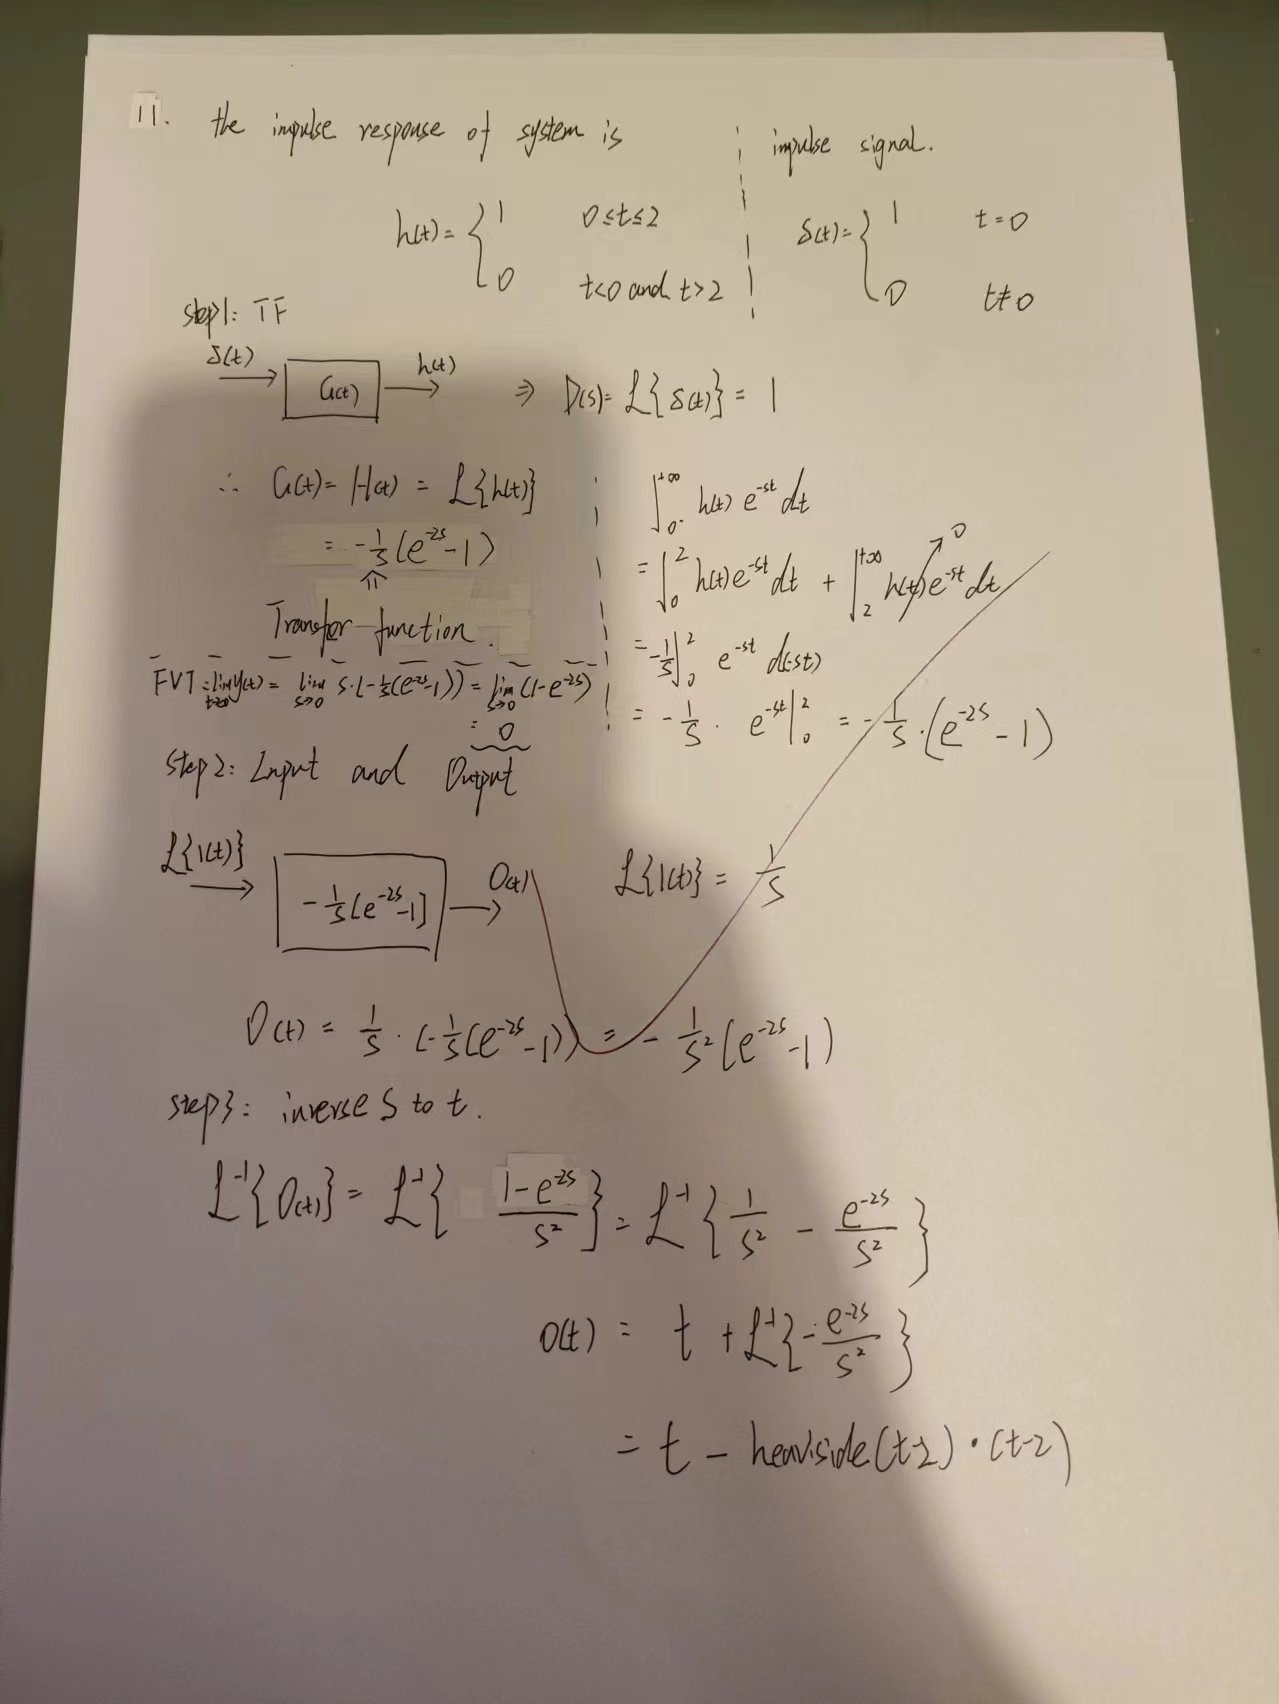 11. the impulse response of system is
h(t)= { 1 0≤t≤2
0 t<0 and t>2
impulse signal.
δ(t)= { 1 t=0
0 t≠0
step1: TF
δ(t) → G(t) → h(t) ⇒ D(s)= ℒ{δ(t)} = 1
∴ G(t)= H(t) = ℒ{h(t)}
= -1/s (e^-2s -1)
⇑
Transfer function.
∫_0-^+∞ h(t) e^-st dt
= ∫_0^2 h(t)e^-st dt + ∫_2^+∞ h(t)e^-st dt → 0
= -1/s ∫_0^2 e^-st d(-st)
= -1/s · e^-st |_0^2 = -1/s · (e^-2s - 1)
FVT: lim_t→∞ y(t) = lim_s→0 s·(-1/s(e^-2s -1)) = lim_s→0 (1-e^-2s)
= 0
step2: Input and Output
ℒ{1(t)} → -1/s [e^-2s -1] → O(t)
ℒ{1(t)} = 1/s
O(t) = 1/s · (-1/s(e^-2s -1)) = - 1/s² (e^-2s -1)
step3: inverse s to t.
ℒ^-1{O(t)} = ℒ^-1{ (1-e^-2s)/s² } = ℒ^-1{ 1/s² - e^-2s/s² }
o(t) = t + ℒ^-1{ -e^-2s/s² }
= t - heaviside(t-2)·(t-2)